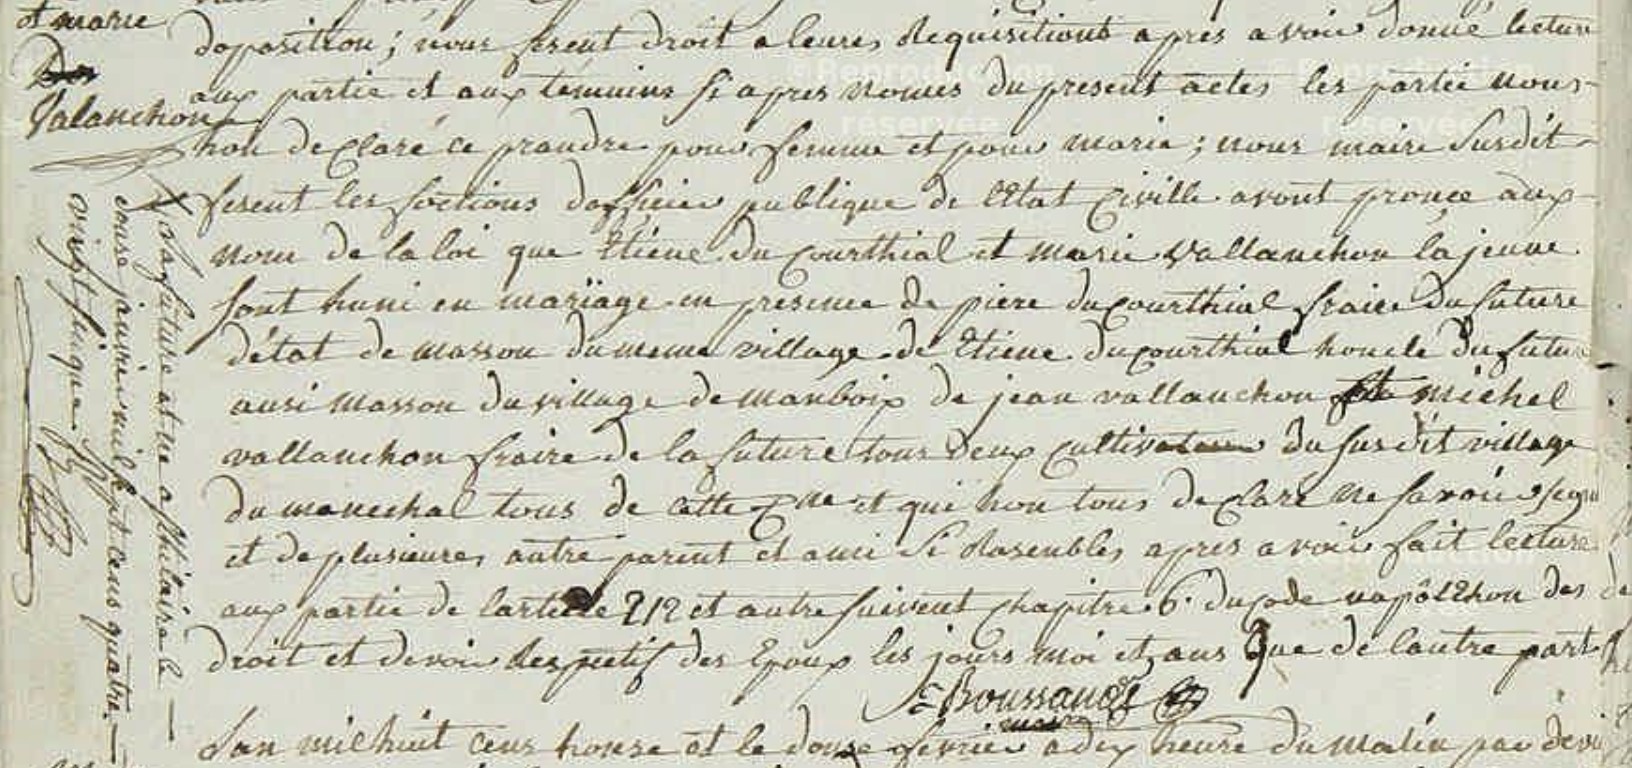 et marie
Valanchon
doposition; nous fesent droit a leures Requisitions apres avoir donné lecture
aux partie et aux temuins si apres nomes du present actes les partie nous
hon declaré ce prandre pour femme et pour marie; nous maire Susdit
fesent les foctions dofficier publique de lEtat Civille. avont pronce aux
nom de la loi que Etiene du courthial et marie Vallanchon la jeune
sont huni en mariage en presence de piere du courthial fraire du future
d'état de masson du meme village de Etiene ducourthial honcle du future
ausi masson du village de manboix de jean vallanchon michel
vallanchon fraire de la future tous deux cultivateur du susdit village
du manechal tous de cette cne et qui hon tous declaré ne savoir signe
et de plusieures autre parent et ami Si Rasembles apres avoir fait lecture
aux partie de larticle 212 et autre suivent chapitre 6. du code napôléhon des
droit et devoir Respetif des Epoux les jours moi et ans que de lautre part
Boussauge
maire
Lan mil huit cens honse et le douse fevrier a dix heure du matin par devi
la future et née a St hilaire le
onse janvier mil sept cens quatre
vingt sinque
Reproduction
réservée
Reproduction
réservée